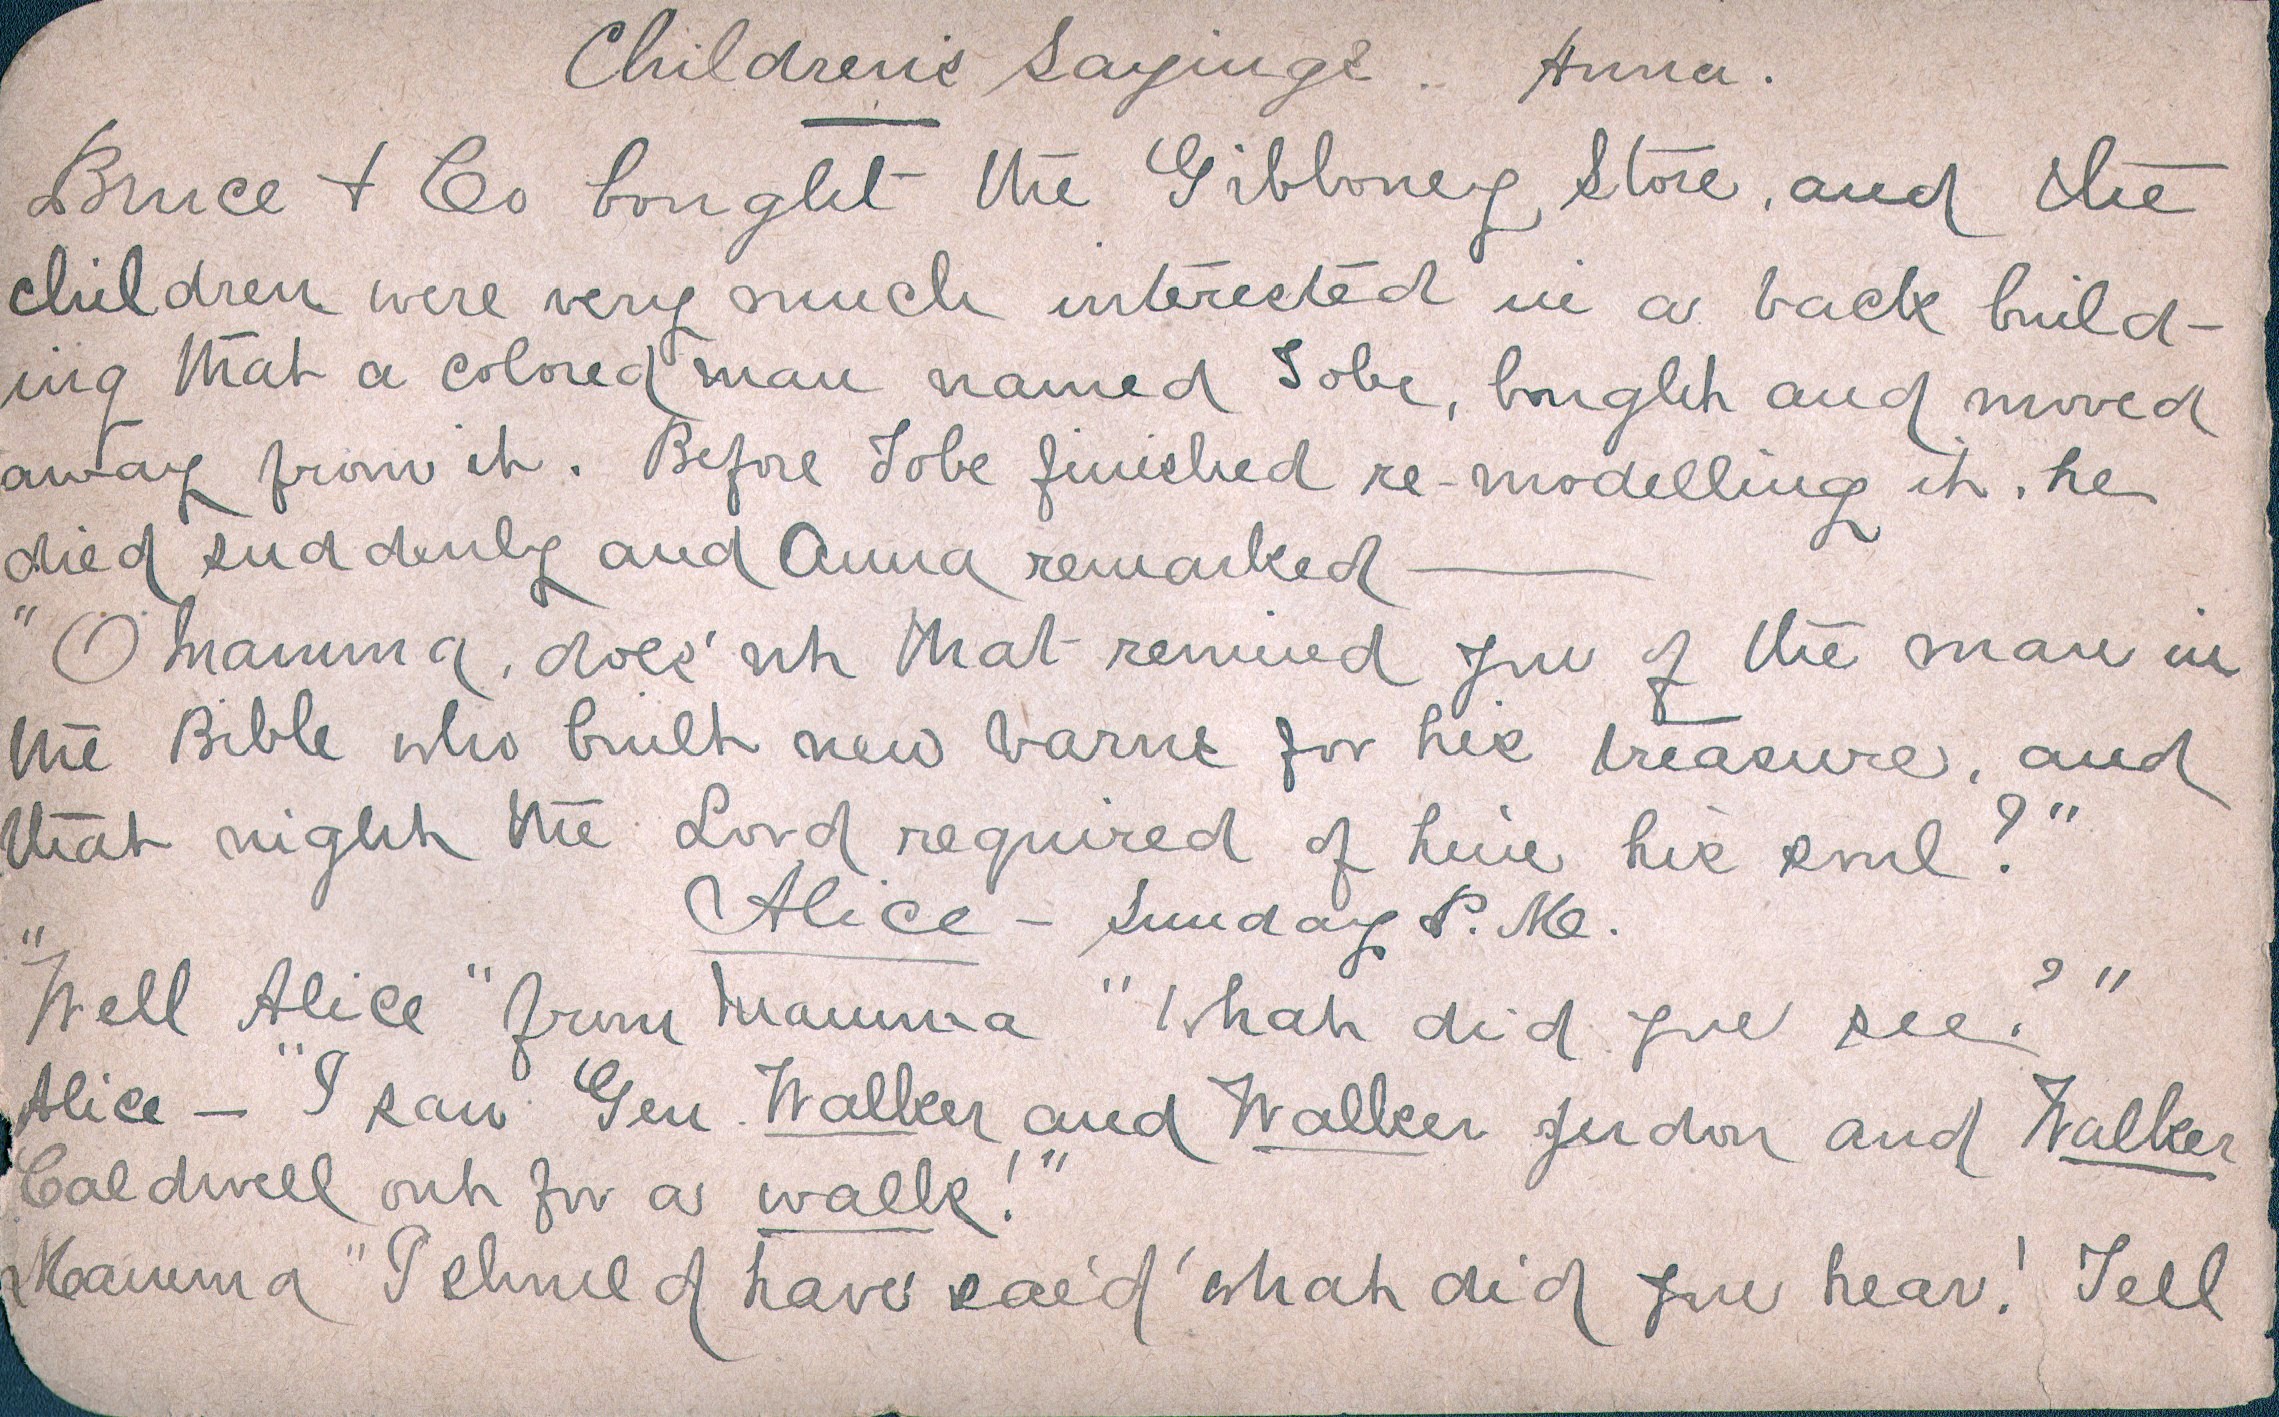 Children's Sayings. Anna.
Bruce & Co bought the Gibboney Store, and the
children were very much interested in a back build-
ing that a colored man named Tobe, bought and moved
away from it. Before Tobe finished re-modelling it, he
died suddenly and Anna remarked —
"O Mamma, does'nt that remind you of the man in
the Bible who built new barns for his treasure, and
that night the Lord required of him his soul?"
Alice - Sunday P.M.
"Well Alice" from Mamma "What did you see?"
Alice — "I saw Gen. Walker and Walker Jordon and Walker
Caldwell out for a walk!"
Mamma "I should have said 'what did you hear! Tell